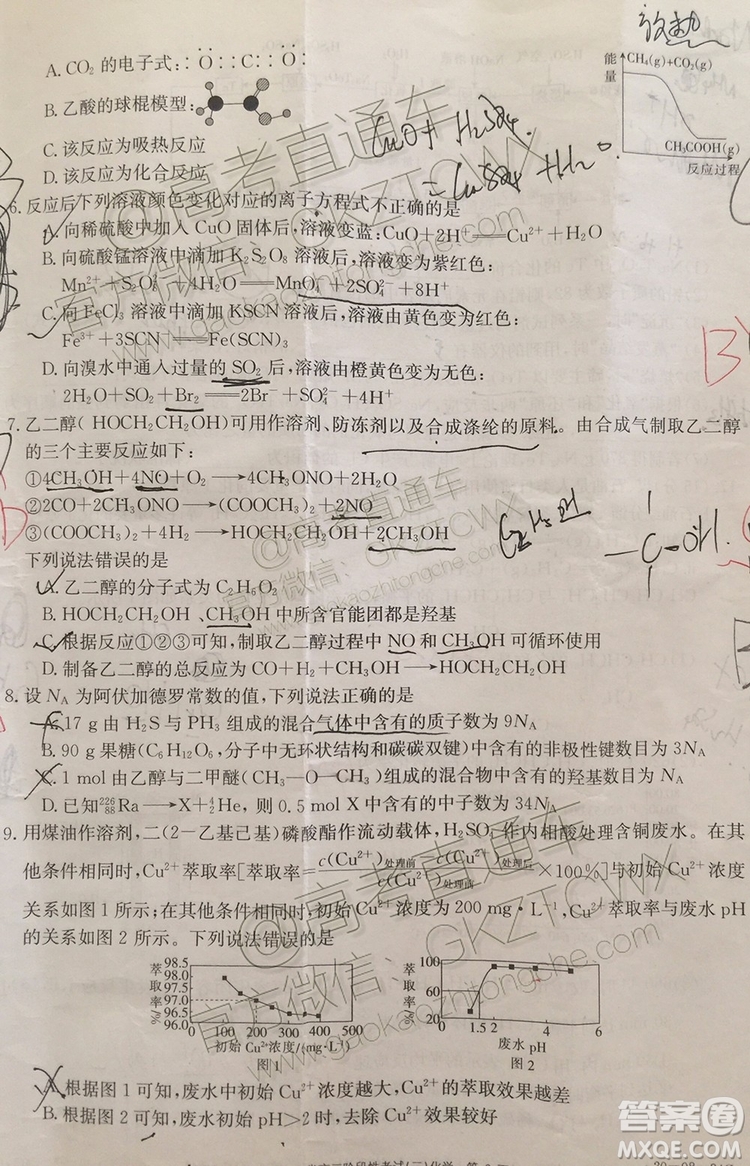 放热
A.CO₂的电子式::Ö::C::Ö:
能量
CH₄(g)+CO₂(g)
CH₃COOH(g)
反应过程
B.乙酸的球棍模型:
C.该反应为吸热反应
D.该反应为化合反应
CuO+H₂SO₄
=CuSO₄+H₂O
6.反应后下列溶液颜色变化对应的离子方程式不正确的是
A.向稀硫酸中加入CuO固体后,溶液变蓝:CuO+2H⁺══Cu²⁺+H₂O
B.向硫酸锰溶液中滴加K₂S₂O₈溶液后,溶液变为紫红色:
Mn²⁺+S₂O₈²⁻+4H₂O══MnO₄⁻+2SO₄²⁻+8H⁺
C.向FeCl₃溶液中滴加KSCN溶液后,溶液由黄色变为红色:
Fe³⁺+3SCN⁻══Fe(SCN)₃
D.向溴水中通入过量的SO₂后,溶液由橙黄色变为无色:
2H₂O+SO₂+Br₂══2Br⁻+SO₄²⁻+4H⁺
B
7.乙二醇(HOCH₂CH₂OH)可用作溶剂、防冻剂以及合成涤纶的原料。由合成气制取乙二醇
的三个主要反应如下:
①4CH₃OH+4NO+O₂⟶4CH₃ONO+2H₂O
②2CO+2CH₃ONO⟶(COOCH₃)₂+2NO
③(COOCH₃)₂+4H₂⟶HOCH₂CH₂OH+2CH₃OH
C₂H₅OH
C-OH
下列说法错误的是
A.乙二醇的分子式为C₂H₆O₂
B.HOCH₂CH₂OH、CH₃OH中所含官能团都是羟基
C.根据反应①②③可知,制取乙二醇过程中NO和CH₃OH可循环使用
D.制备乙二醇的总反应为CO+H₂+O₂⟶HOCH₂CH₂OH+H₂O
8.设Nₐ为阿伏加德罗常数的值,下列说法正确的是
A.17 g由H₂S与PH₃组成的混合气体中含有的质子数为9Nₐ
B.90 g果糖(C₆H₁₂O₆,分子中无环状结构和碳碳双键)中含有的非极性键数目为3Nₐ
C.1 mol由乙醇与二甲醚(CH₃—O—CH₃)组成的混合物中含有的羟基数目为Nₐ
D.已知²²⁶₈₈Ra⟶X+⁴₂He,则0.5 mol X中含有的中子数为34Nₐ
9.用煤油作溶剂,二(2-乙基己基)磷酸酯作流动载体,H₂SO₄作内相酸处理含铜废水。在其
他条件相同时,Cu²⁺萃取率[萃取率=(c(Cu²⁺)处理前-c(Cu²⁺)处理后)/c(Cu²⁺)处理前×100%]与初始Cu²⁺浓度
关系如图1所示;在其他条件相同时,初始Cu²⁺浓度为200 mg·L⁻¹,Cu²⁺萃取率与废水pH
的关系如图2所示。下列说法错误的是
萃取率/%
98.5
98.0
97.5
97.0
96.5
96.0
0 100 200 300 400 500
初始Cu²⁺浓度/(mg·L⁻¹)
图1
萃取率/%
100
60
20
1.5 2 4 6
废水pH
图2
A.根据图1可知,废水中初始Cu²⁺浓度越大,Cu²⁺的萃取效果越差
B.根据图2可知,废水初始pH>2时,去除Cu²⁺效果较好
@高考直通车
官方微信:GKZTCWX
www.gaokaozhitongche.com
答案圈
MXQE.COM